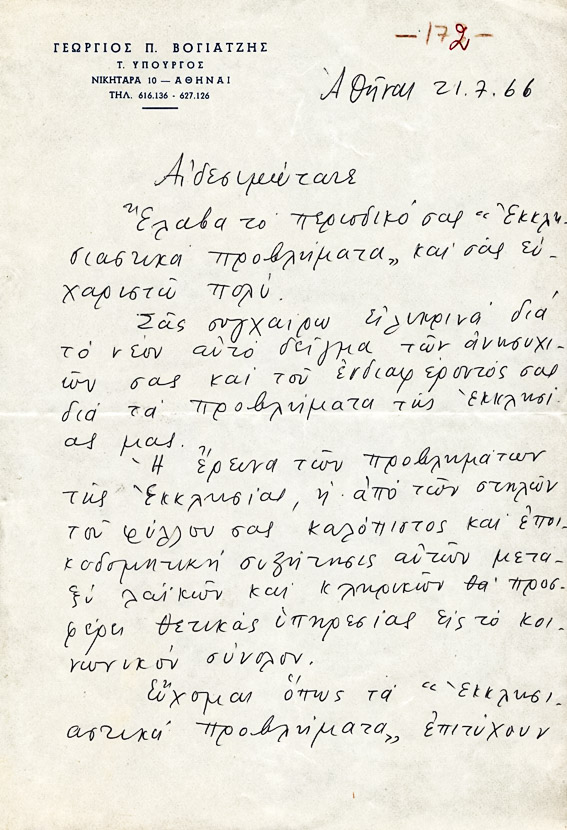 — 172 —
ΓΕΩΡΓΙΟΣ Π. ΒΟΓΙΑΤΖΗΣ
Τ. ΥΠΟΥΡΓΟΣ
ΝΙΚΗΤΑΡΑ 10 — ΑΘΗΝΑΙ
ΤΗΛ. 616.136 - 627.126
Ἀθῆναι 21.7.66
Αἰδεσιμώτατε
Ἔλαβα τό περιοδικό σας “Ἐκκλη-
σιαστικά προβλήματα„ καί σᾶς εὐ-
χαριστῶ πολύ.
Σᾶς συγχαίρω εἰλικρινά διά
τό νέον αὐτό δεῖγμα τῶν ἀνησυχι-
ῶν σας καί τοῦ ἐνδιαφέροντός σας
διά τά προβλήματα τῆς Ἐκκλησί-
ας μας.
Ἡ ἔρευνα τῶν προβλημάτων
τῆς Ἐκκλησίας, ἡ ἀπό τῶν στηλῶν
τοῦ φύλλου σας καλόπιστος καί ἐποι-
κοδομητική συζήτησις αὐτῶν μετα-
ξύ λαϊκῶν καί κληρικῶν θά προσ-
φέρει θετικάς ὑπηρεσίας εἰς τό κοι-
νωνικόν σύνολον.
Εὔχομαι ὅπως τά “Ἐκκλησι-
αστικά προβλήματα„ ἐπιτύχουν